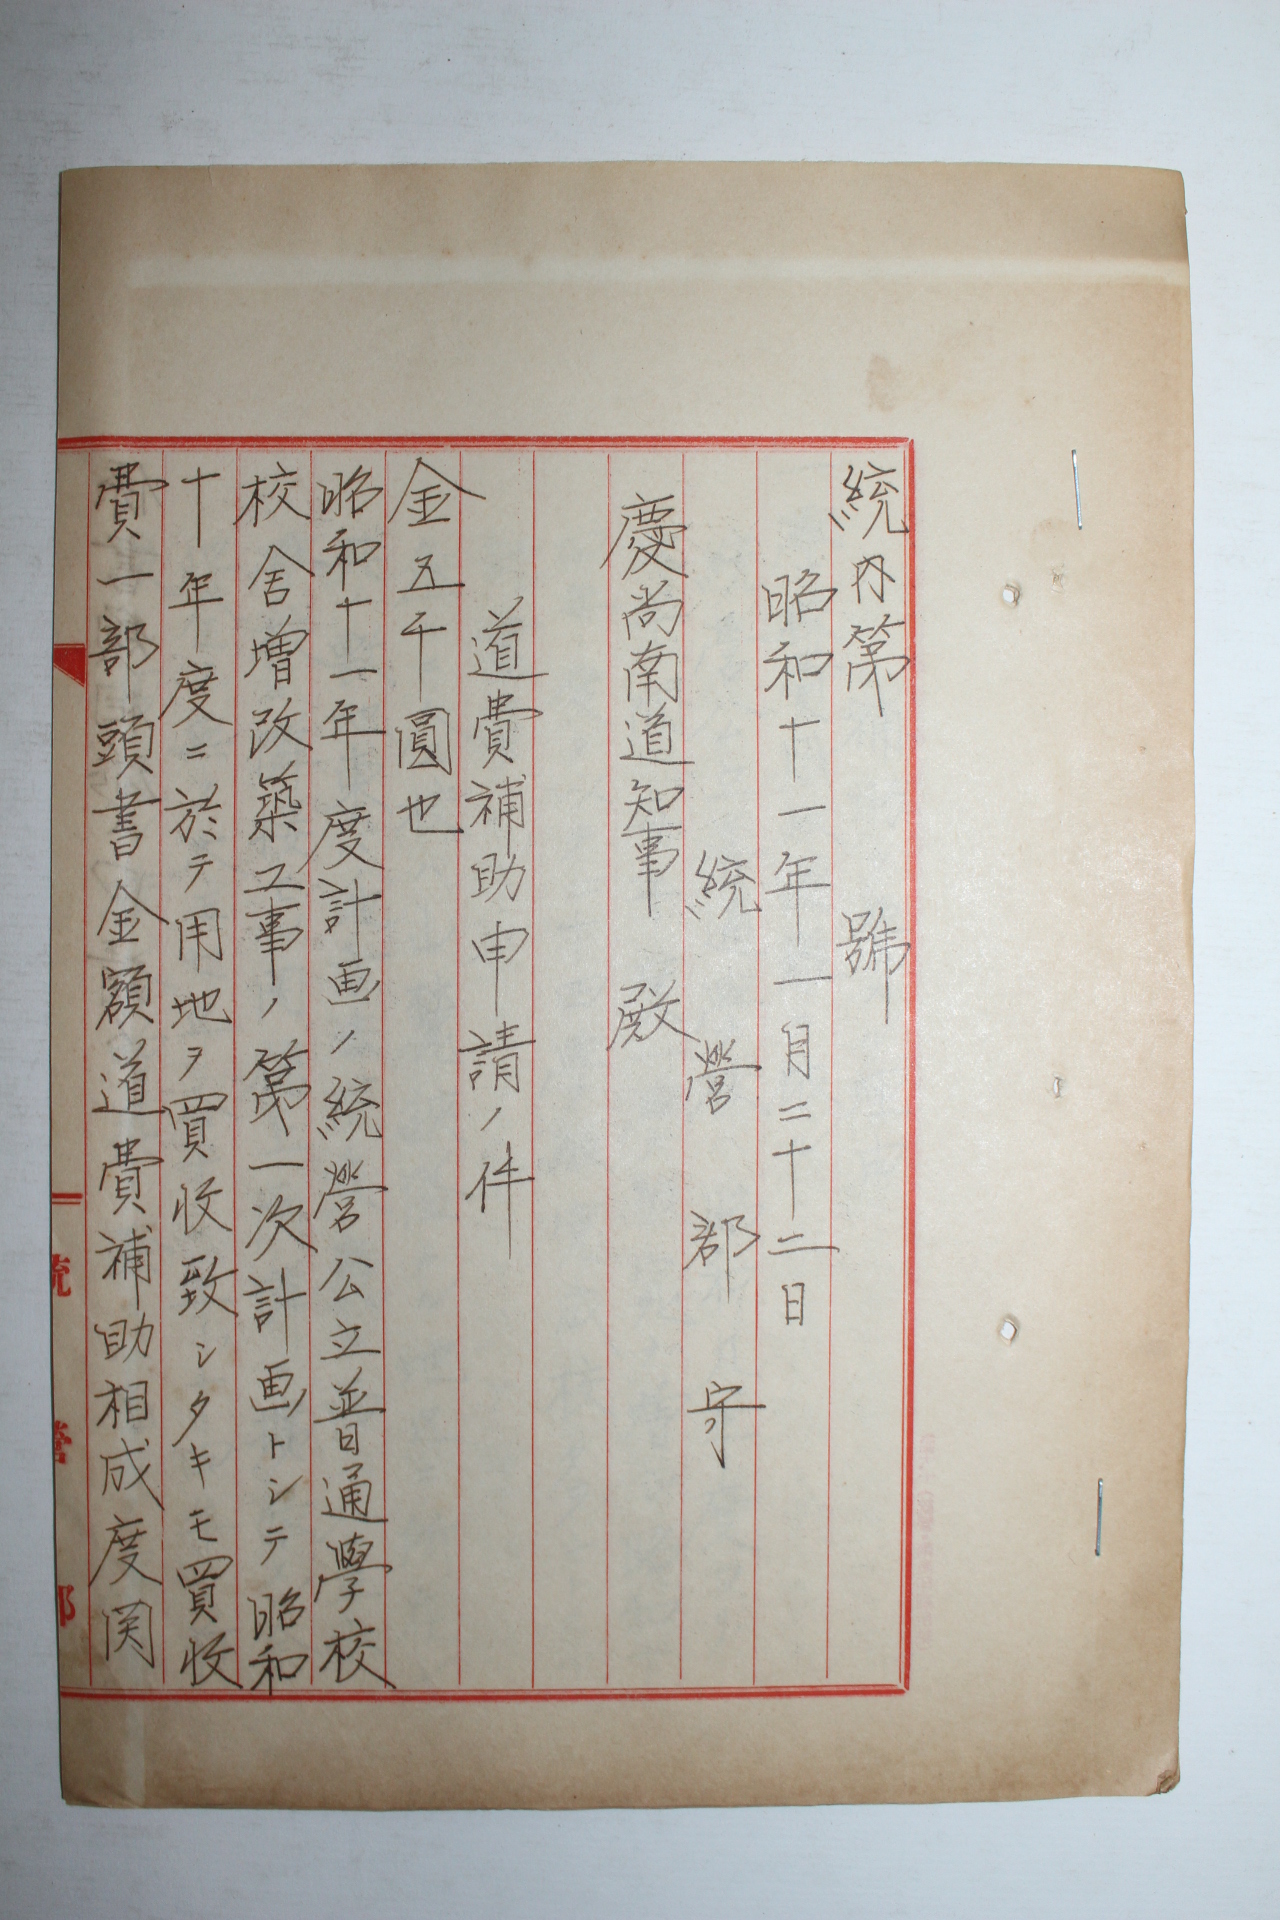 統内第　　號
昭和十一年一月二十二日
統營郡守
慶尚南道知事　殿
道費補助申請ノ件
金五千圓也
昭和十一年度計画ノ統營公立普通學校
校舍增改築工事ノ第一次計画トシテ昭和
十年度ニ於テ用地ヲ買收致シタキモ買收
費一部頭書金額道費補助相成度関
統營郡